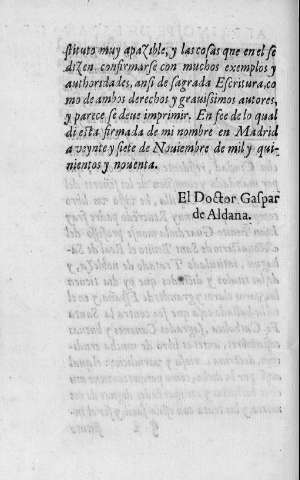 stituto muy apazible, y las cosas que en el se
dizen confirmarse con muchos exemplos y
authoridades, ansi de sagrada Escritura, co
mo de ambos derechos y grauissimos autores,
y parece se deue imprimir. En fee de lo qual
di esta firmada de mi nombre en Madrid
a veynte y siete de Nouiembre de mil y qui-
nientos y nouenta.
El Doctor Gaspar
de Aldana.